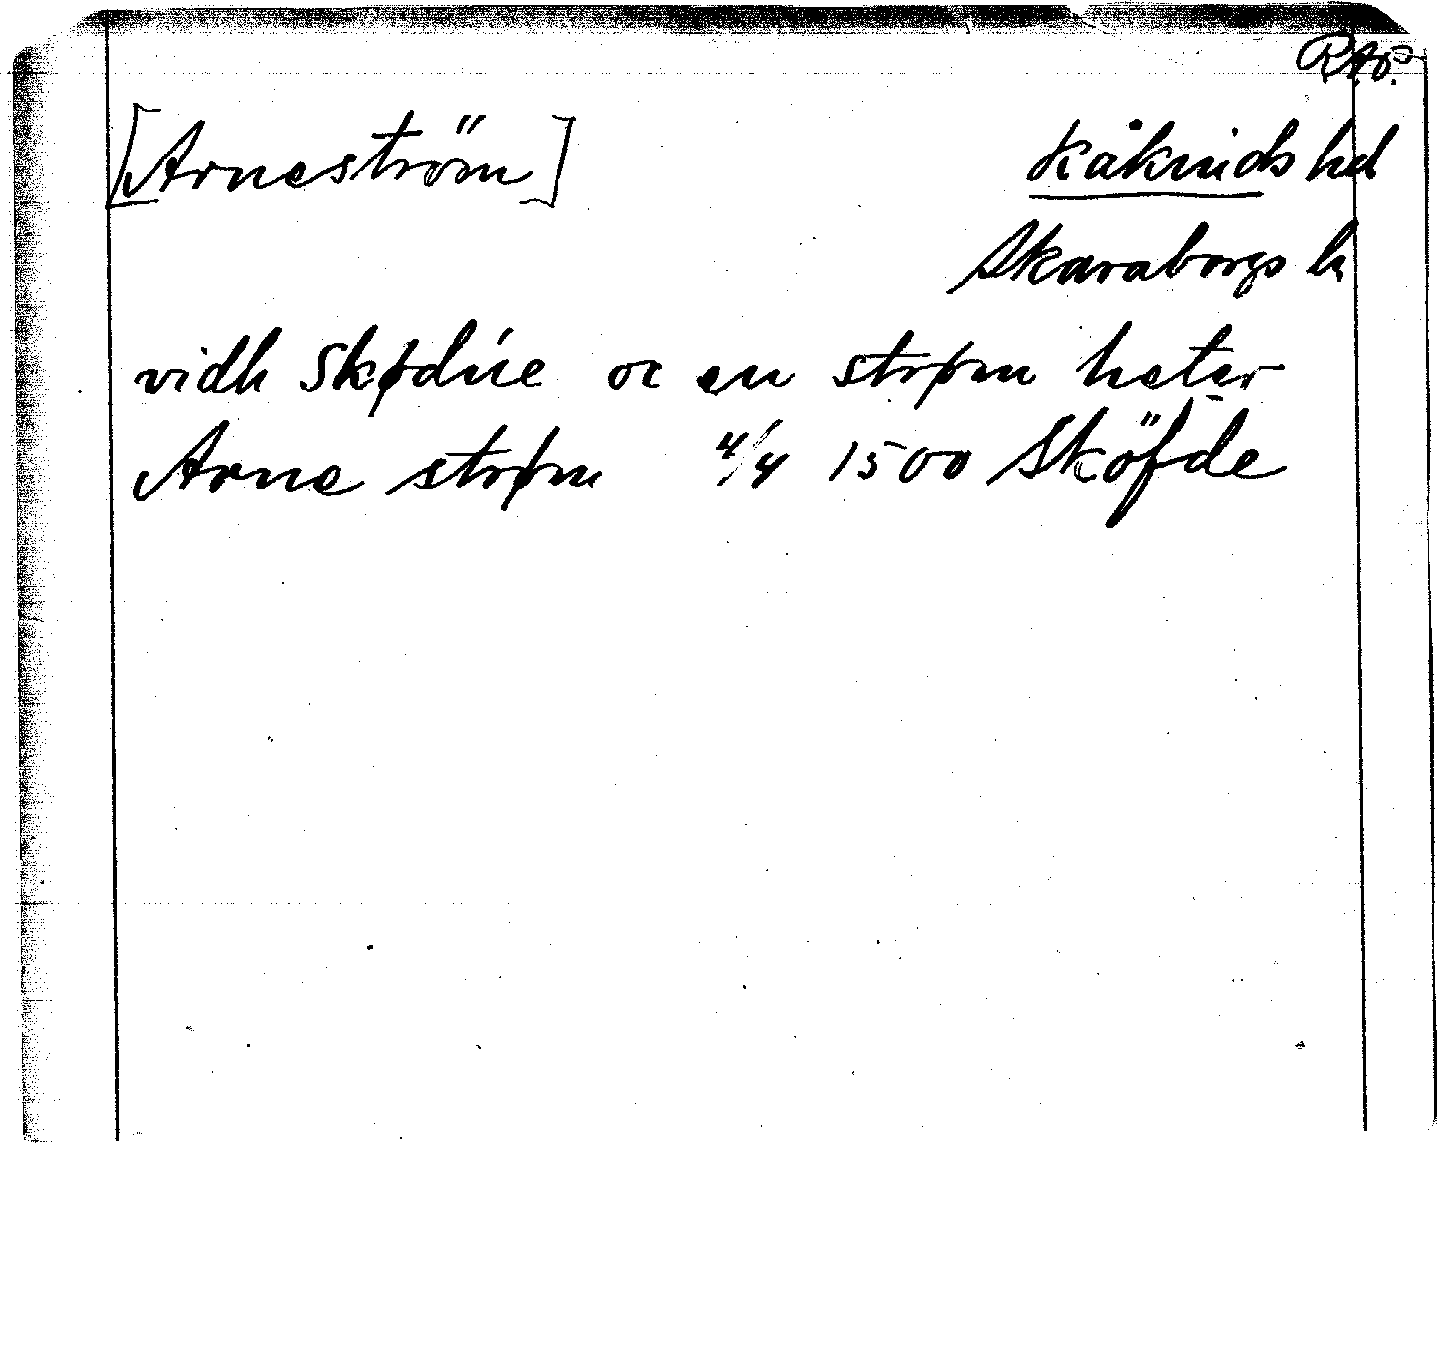 RAp.
[Arneström] Kåkinds hd
Skaraborgs l.
vidh Skødúe oc en strøm heter
Arne strøm 4/4 1500 Sköfde